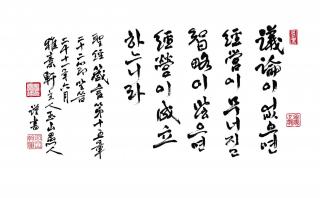 議論이 없으면
經營이 무너짐
智略이 많으면
經營이 成立
하느니라
聖經 箴言 第十五章
二十二節
二千十一年六月
軒主人玉山愚人
謹書